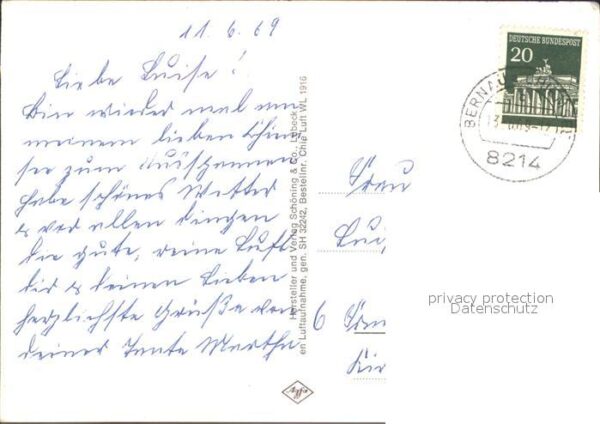 11.6.69
Liebe Luise!
Bin wieder mal an
meinem lieben Chiem
see zum Ausspannen
habe schönes Wetter
& vor allen Dingen
die gute, reine Luft
Dir & deinen Lieben
herzlichste Grüße von
deiner Tante Martha
Hersteller und Verlag Schöning & Co., Lübeck
en Luftaufnahme, gen. SH 32242, Bestellnr. Chie Luft WL 1916
DEUTSCHE BUNDESPOST
20
BERNAU
8214
Frau
Lui
6
privacy protection
Datenschutz